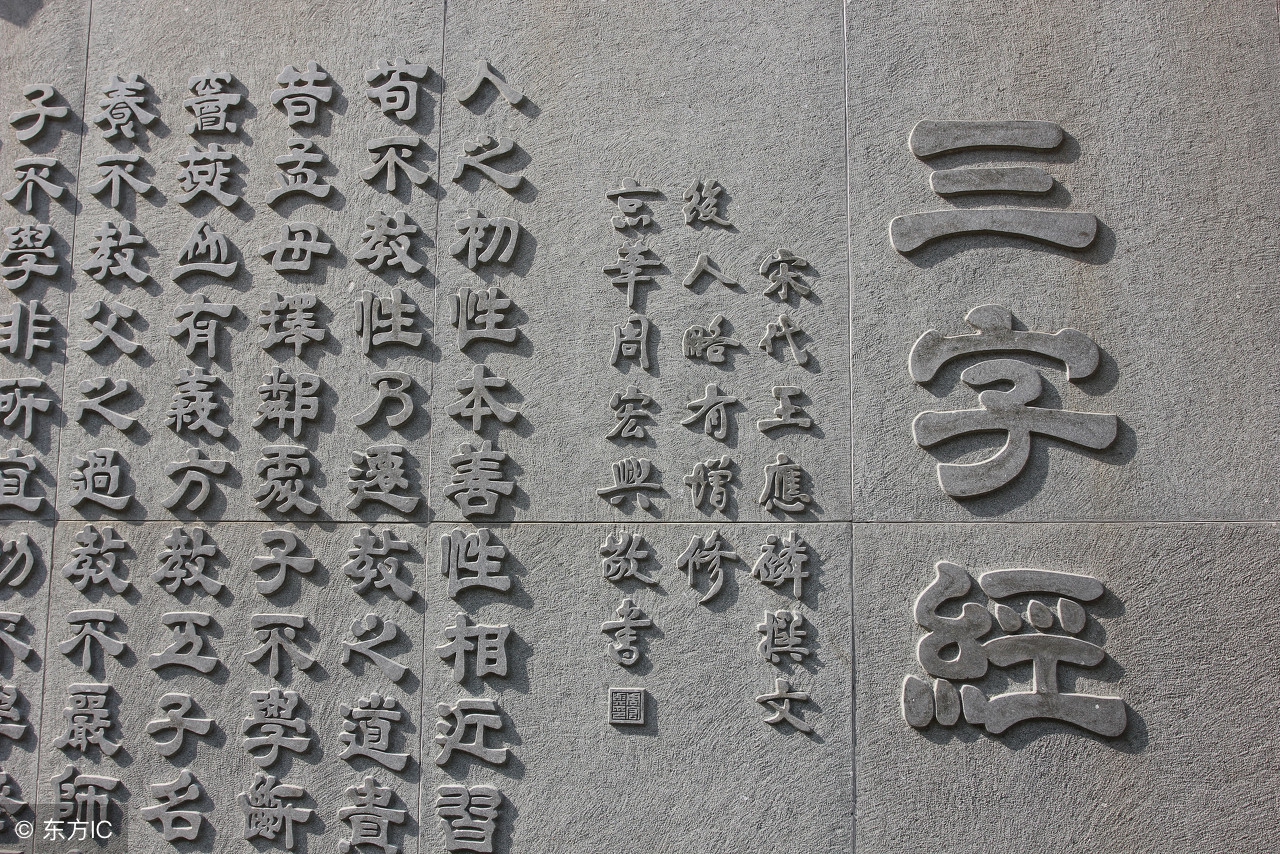 三字經
宋代王應磷撰文
後人略有增修
京華周宏興敬書
人之初性本善性相近習
苟不教性乃遷教之道貴
昔孟母擇鄰處子不學斷
竇燕山有義方教五子名
養不教父之過教不嚴師
子不學非所宜幼不學
© 东方IC